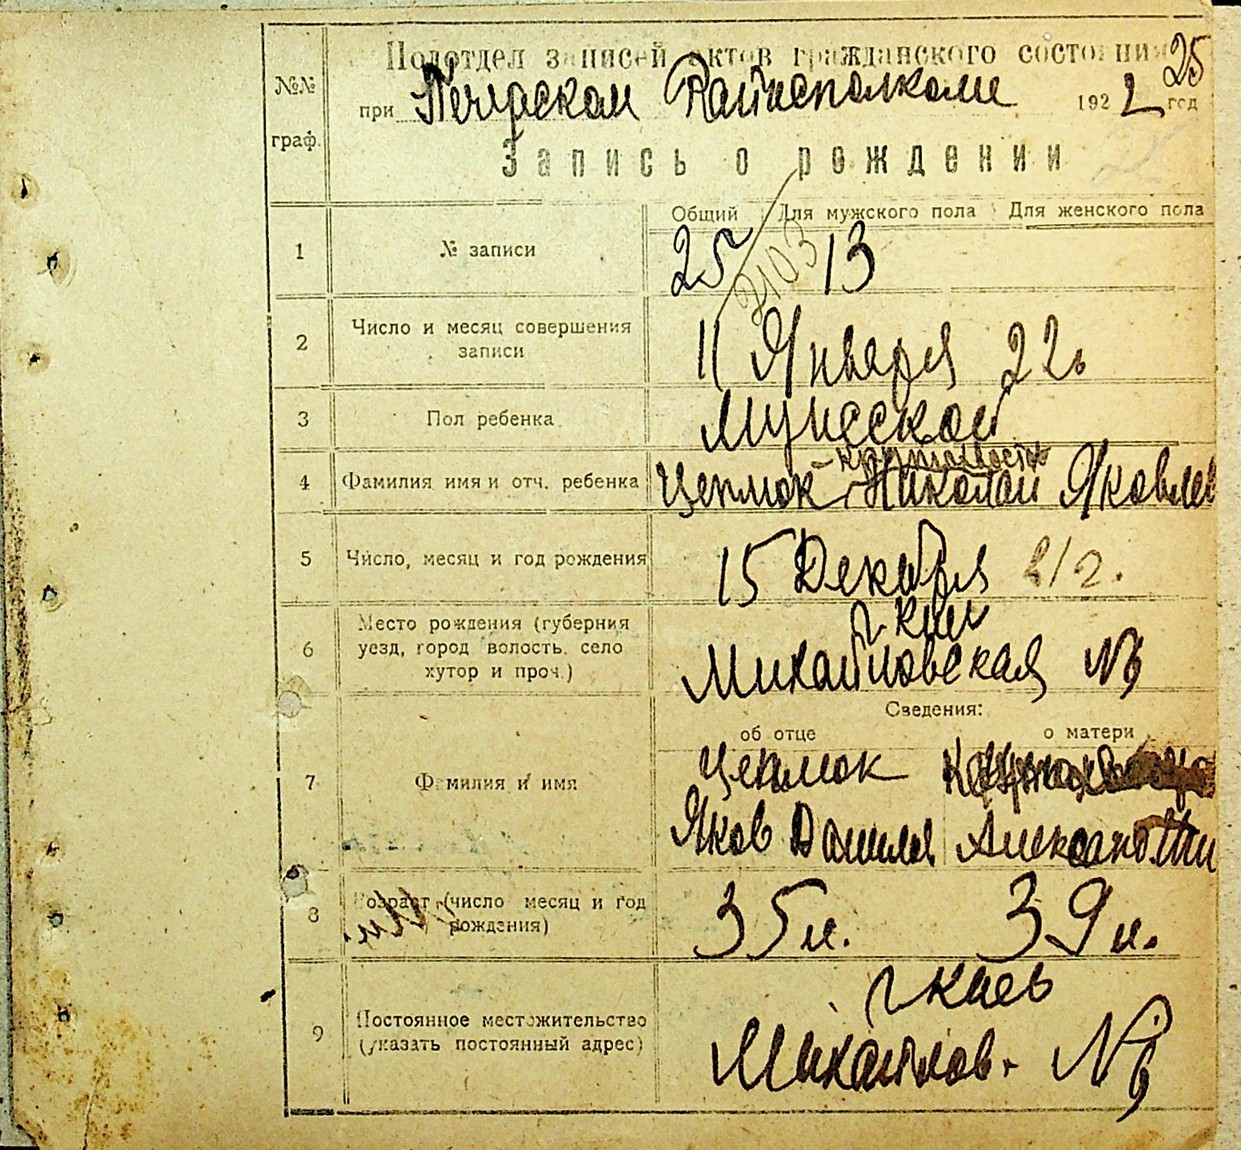 25
Подотдел записей актов гражданского состояния
при Печерском Райисполкоме 1922 год
№№ граф.
Запись о рождении
Общий Для мужского пола Для женского пола
1 № записи 25 13
2103
2 Число и месяц совершения записи 11 Января 22
3 Пол ребенка Мужской
4 Фамилия, имя и отч. ребенка Цеплюк Николай Яковлев
5 Число, месяц и год рождения 15 Декабря 21 г.
6 Место рождения (губерния
уезд, город волость, село
хутор и проч.)
г Киев
Михайловская №6
Сведения:
об отце о матери
7 Фамилия и имя
Цеплюк
Яков Данилов Александ
8 Возраст (число месяц и год
рождения)
35 л. 39 л.
9 Постоянное местожительство
(указать постоянный адрес)
г Киев
Михайлов. №6